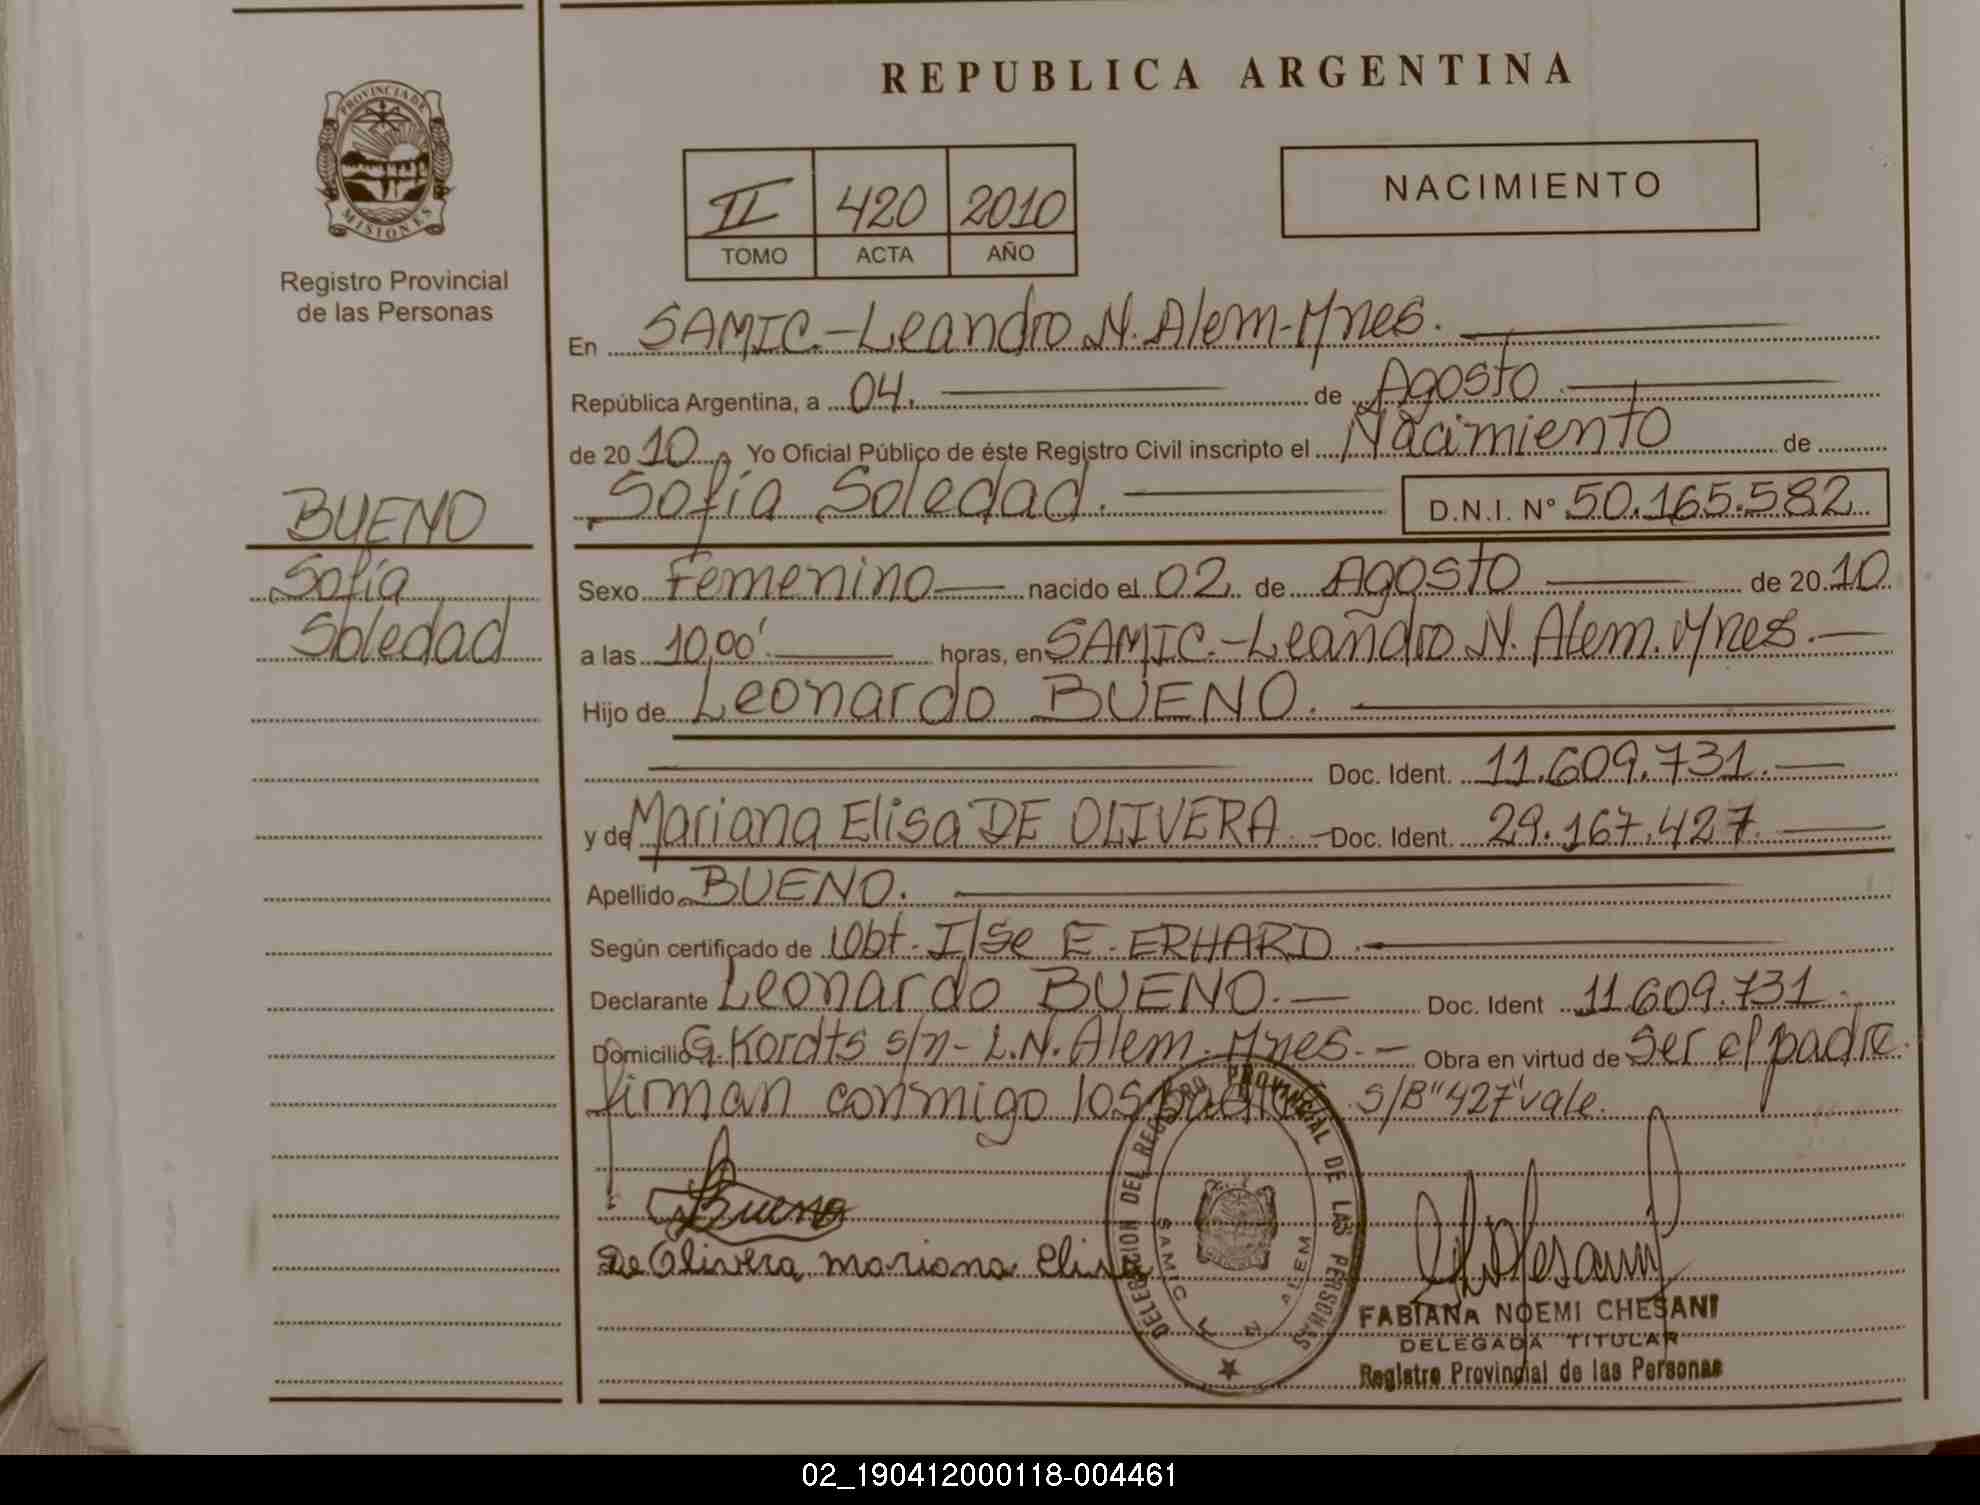 REPUBLICA ARGENTINA
PROVINCIA DE
MISIONES
Registro Provincial
de las Personas
II 420 2010
TOMO ACTA AÑO
NACIMIENTO
En SAMIC.-Leandro N. Alem-Mnes.
República Argentina, a 04. de Agosto
de 2010 Yo Oficial Público de éste Registro Civil inscripto el Nacimiento de
Sofía Soledad. D.N.I. N° 50.165.582
BUENO
Sofía
Soledad
Sexo Femenino nacido el 02 de Agosto de 2010
a las 10,00' horas, en SAMIC.-Leandro N. Alem. Mnes.
Hijo de Leonardo BUENO.
Doc. Ident. 11.609.731.
y de Mariana Elisa DE OLIVERA. Doc. Ident. 29.167.427.
Apellido BUENO.
Según certificado de Obt. Ilse E. ERHARD.
Declarante Leonardo BUENO. Doc. Ident 11.609.731.
Domicilio G. Kordts s/n- L.N. Alem. Mnes. Obra en virtud de Ser el padre.
firman conmigo los S/B "427" vale.
Bueno
De Olivera mariana Elisa
DELEGACION DEL REGISTRO PROVINCIAL DE LAS PERSONAS
SAMIC L N ALEM
FABIANA NOEMI CHESANI
DELEGADA TITULAR
Registro Provincial de las Personas
02_190412000118-004461